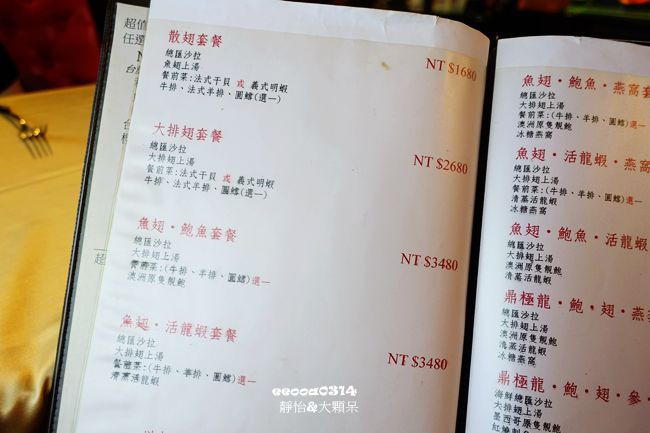 超值
任選
散翅套餐
NT $1680
總匯沙拉
魚翅上湯
餐前菜:法式干貝 或 義式明蝦
牛排、法式羊排、圓鱈(選一)
大排翅套餐
NT $2680
總匯沙拉
大排翅上湯
餐前菜:法式干貝 或 義式明蝦
牛排、法式羊排、圓鱈(選一)
魚翅·鮑魚套餐
NT $3480
總匯沙拉
大排翅上湯
餐前菜:(牛排、羊排、圓鱈)選一
澳洲原隻靚鮑
魚翅·活龍蝦套餐
NT $3480
總匯沙拉
大排翅上湯
餐前菜:(牛排、羊排、圓鱈)選一
清蒸活龍蝦
魚翅·鮑魚·燕窩套
總匯沙拉
大排翅上湯
餐前菜:(牛排、羊排、圓鱈)選一
澳洲原隻靚鮑
冰糖燕窩
魚翅·活龍蝦·燕窩
總匯沙拉
大排翅上湯
餐前菜:(牛排、羊排、圓鱈)選一
清蒸活龍蝦
冰糖燕窩
魚翅·鮑魚·活龍蝦
總匯沙拉
大排翅上湯
澳洲原隻靚鮑
清蒸活龍蝦
鼎極龍·鮑·翅·燕
總匯沙拉
大排翅上湯
澳洲原隻靚鮑
清蒸活龍蝦
冰糖燕窩
鼎極龍·鮑·翅·參·
海鮮總匯沙拉
大排翅上湯
墨西哥原隻靚鮑
eeooa0314
靜怡&大顆呆